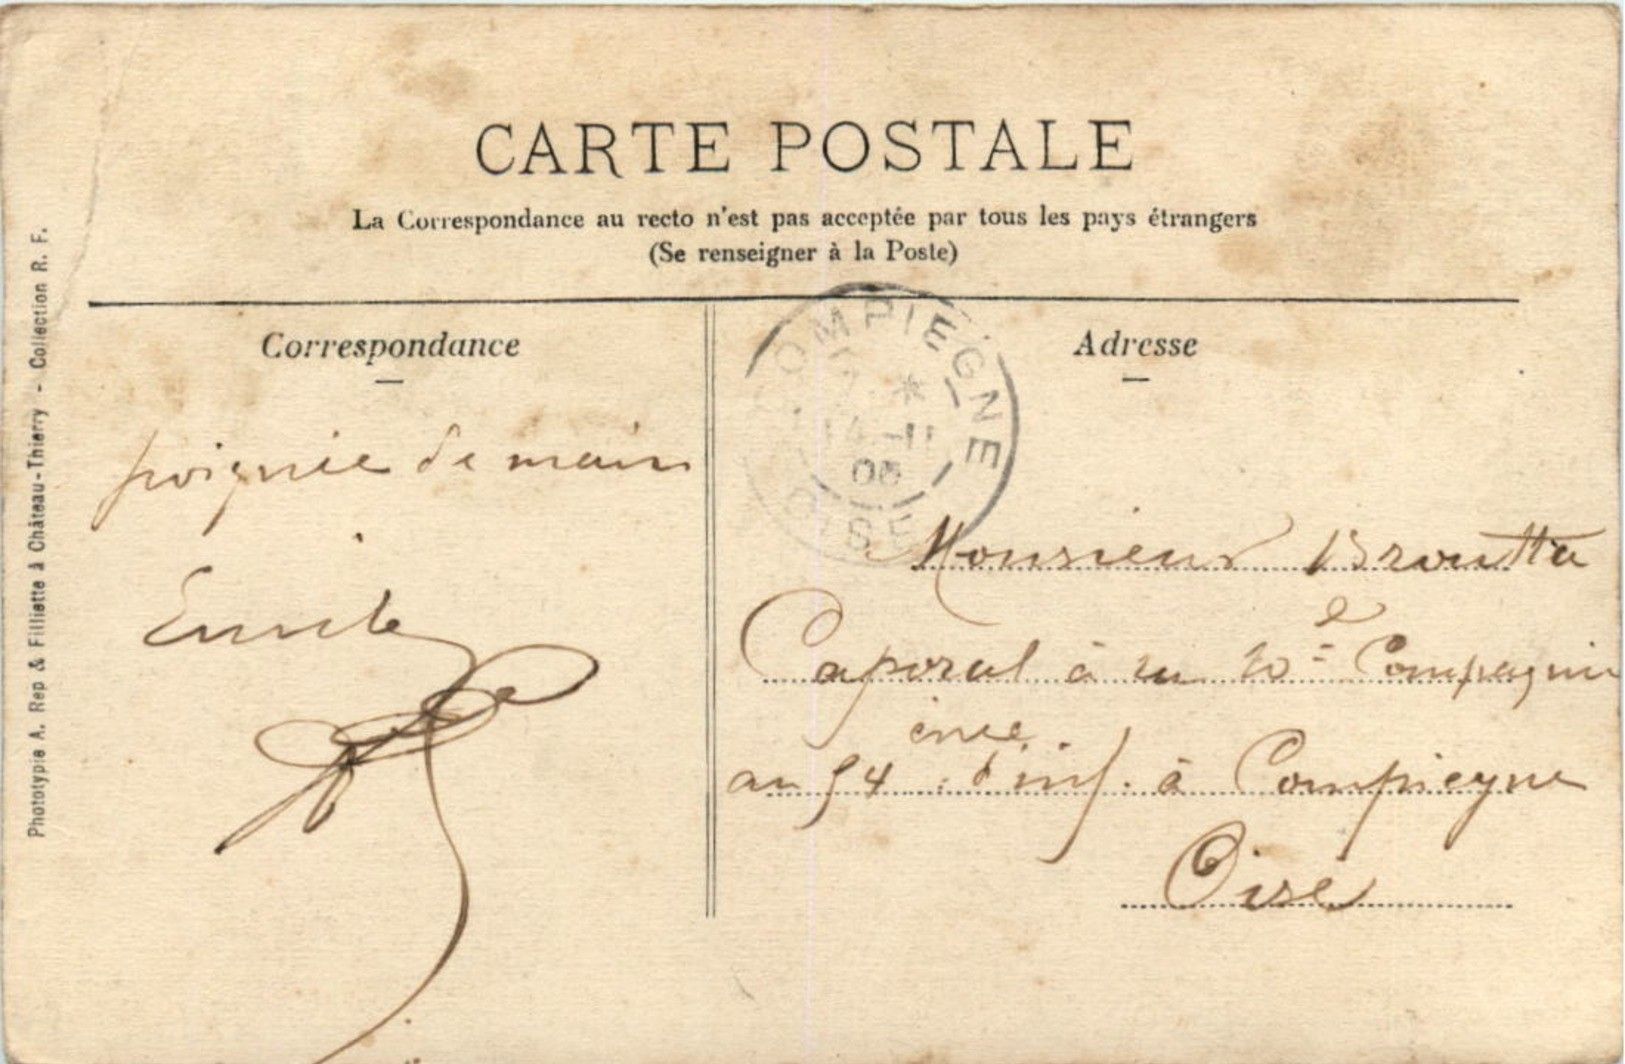 CARTE POSTALE
La Correspondance au recto n'est pas acceptée par tous les pays étrangers
(Se renseigner à la Poste)
Correspondance
poignée de main
Emile
Adresse
COMPIEGNE
OISE
Monsieur
Caporal à la 10e Compagnie
au 54ème d'inf. à Compiegne
Oise
Phototypie A. Rep & Filliette à Château-Thierry - Collection R. F.